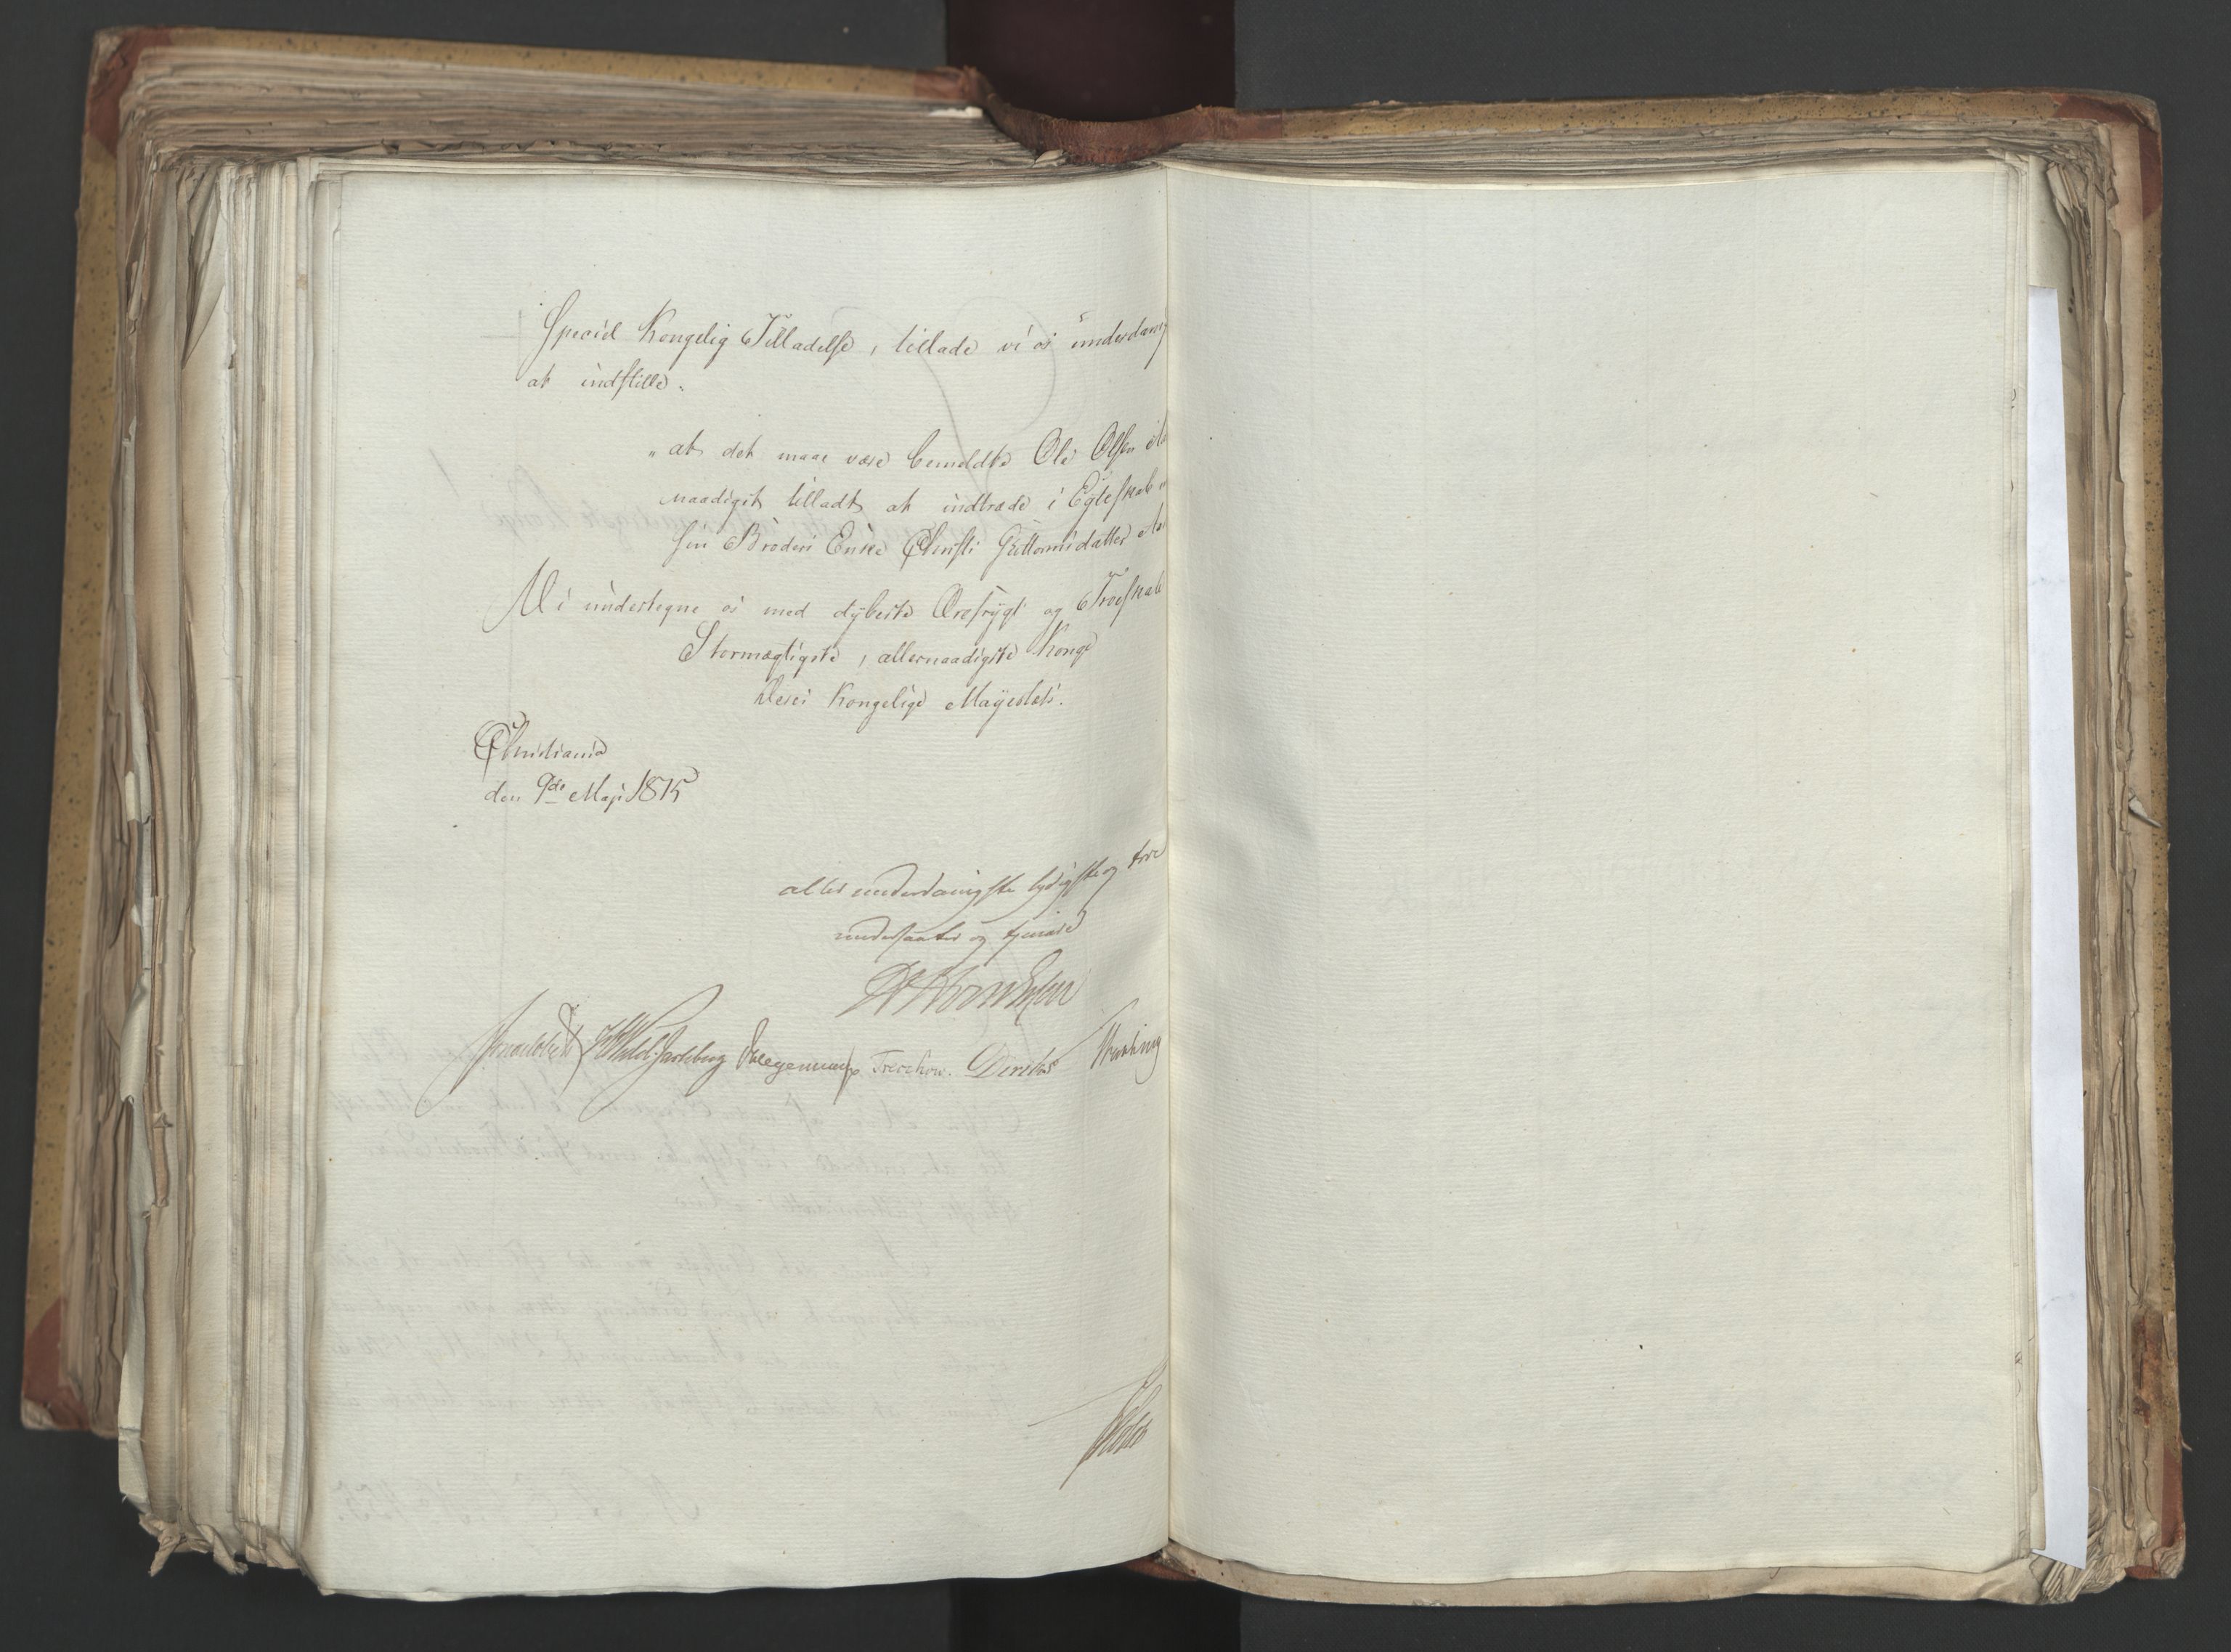 Special Kongelig Tilladelse, tillade vi os underdanig
at indstille:
"at det maae være bemeldte Ole Olsen
naadigst tilladt at indtræde i Egteskab
sin Broders Enke Christi Guttormsdatter
Vi undertegne os med dybeste Ærefrygt og Troeskab
Stormægtigste, allernaadigste Konge
Deres Kongelige Mayestæts.
Christiania
den 9de Maji 1815
allerunderdanigste lydigste og troe
undersaatter og tjenere
Sommerhielm
F Wedel-Jarlsberg Treschow. Diriks
Holst